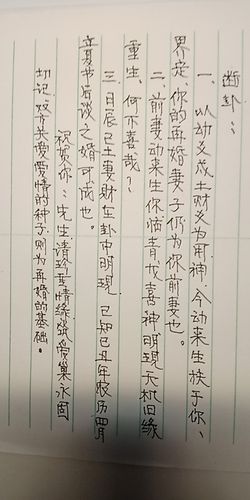 断卦：
一、以动爻戌土财爻为用神，今动来生扶于你、
界定，你的再婚妻子仍为你前妻也。
二、前妻动来生你恼青戌喜神明现天机旧缘
重生，何不喜哉？
三、日辰己土妻财在卦中明现，已知己丑年农历四
立夏节后谈之婚可成也。
祝贺你：先生请珍爱情缘筑爱巢永固
切记双方共爱爱情的种子，则为再婚的基础。